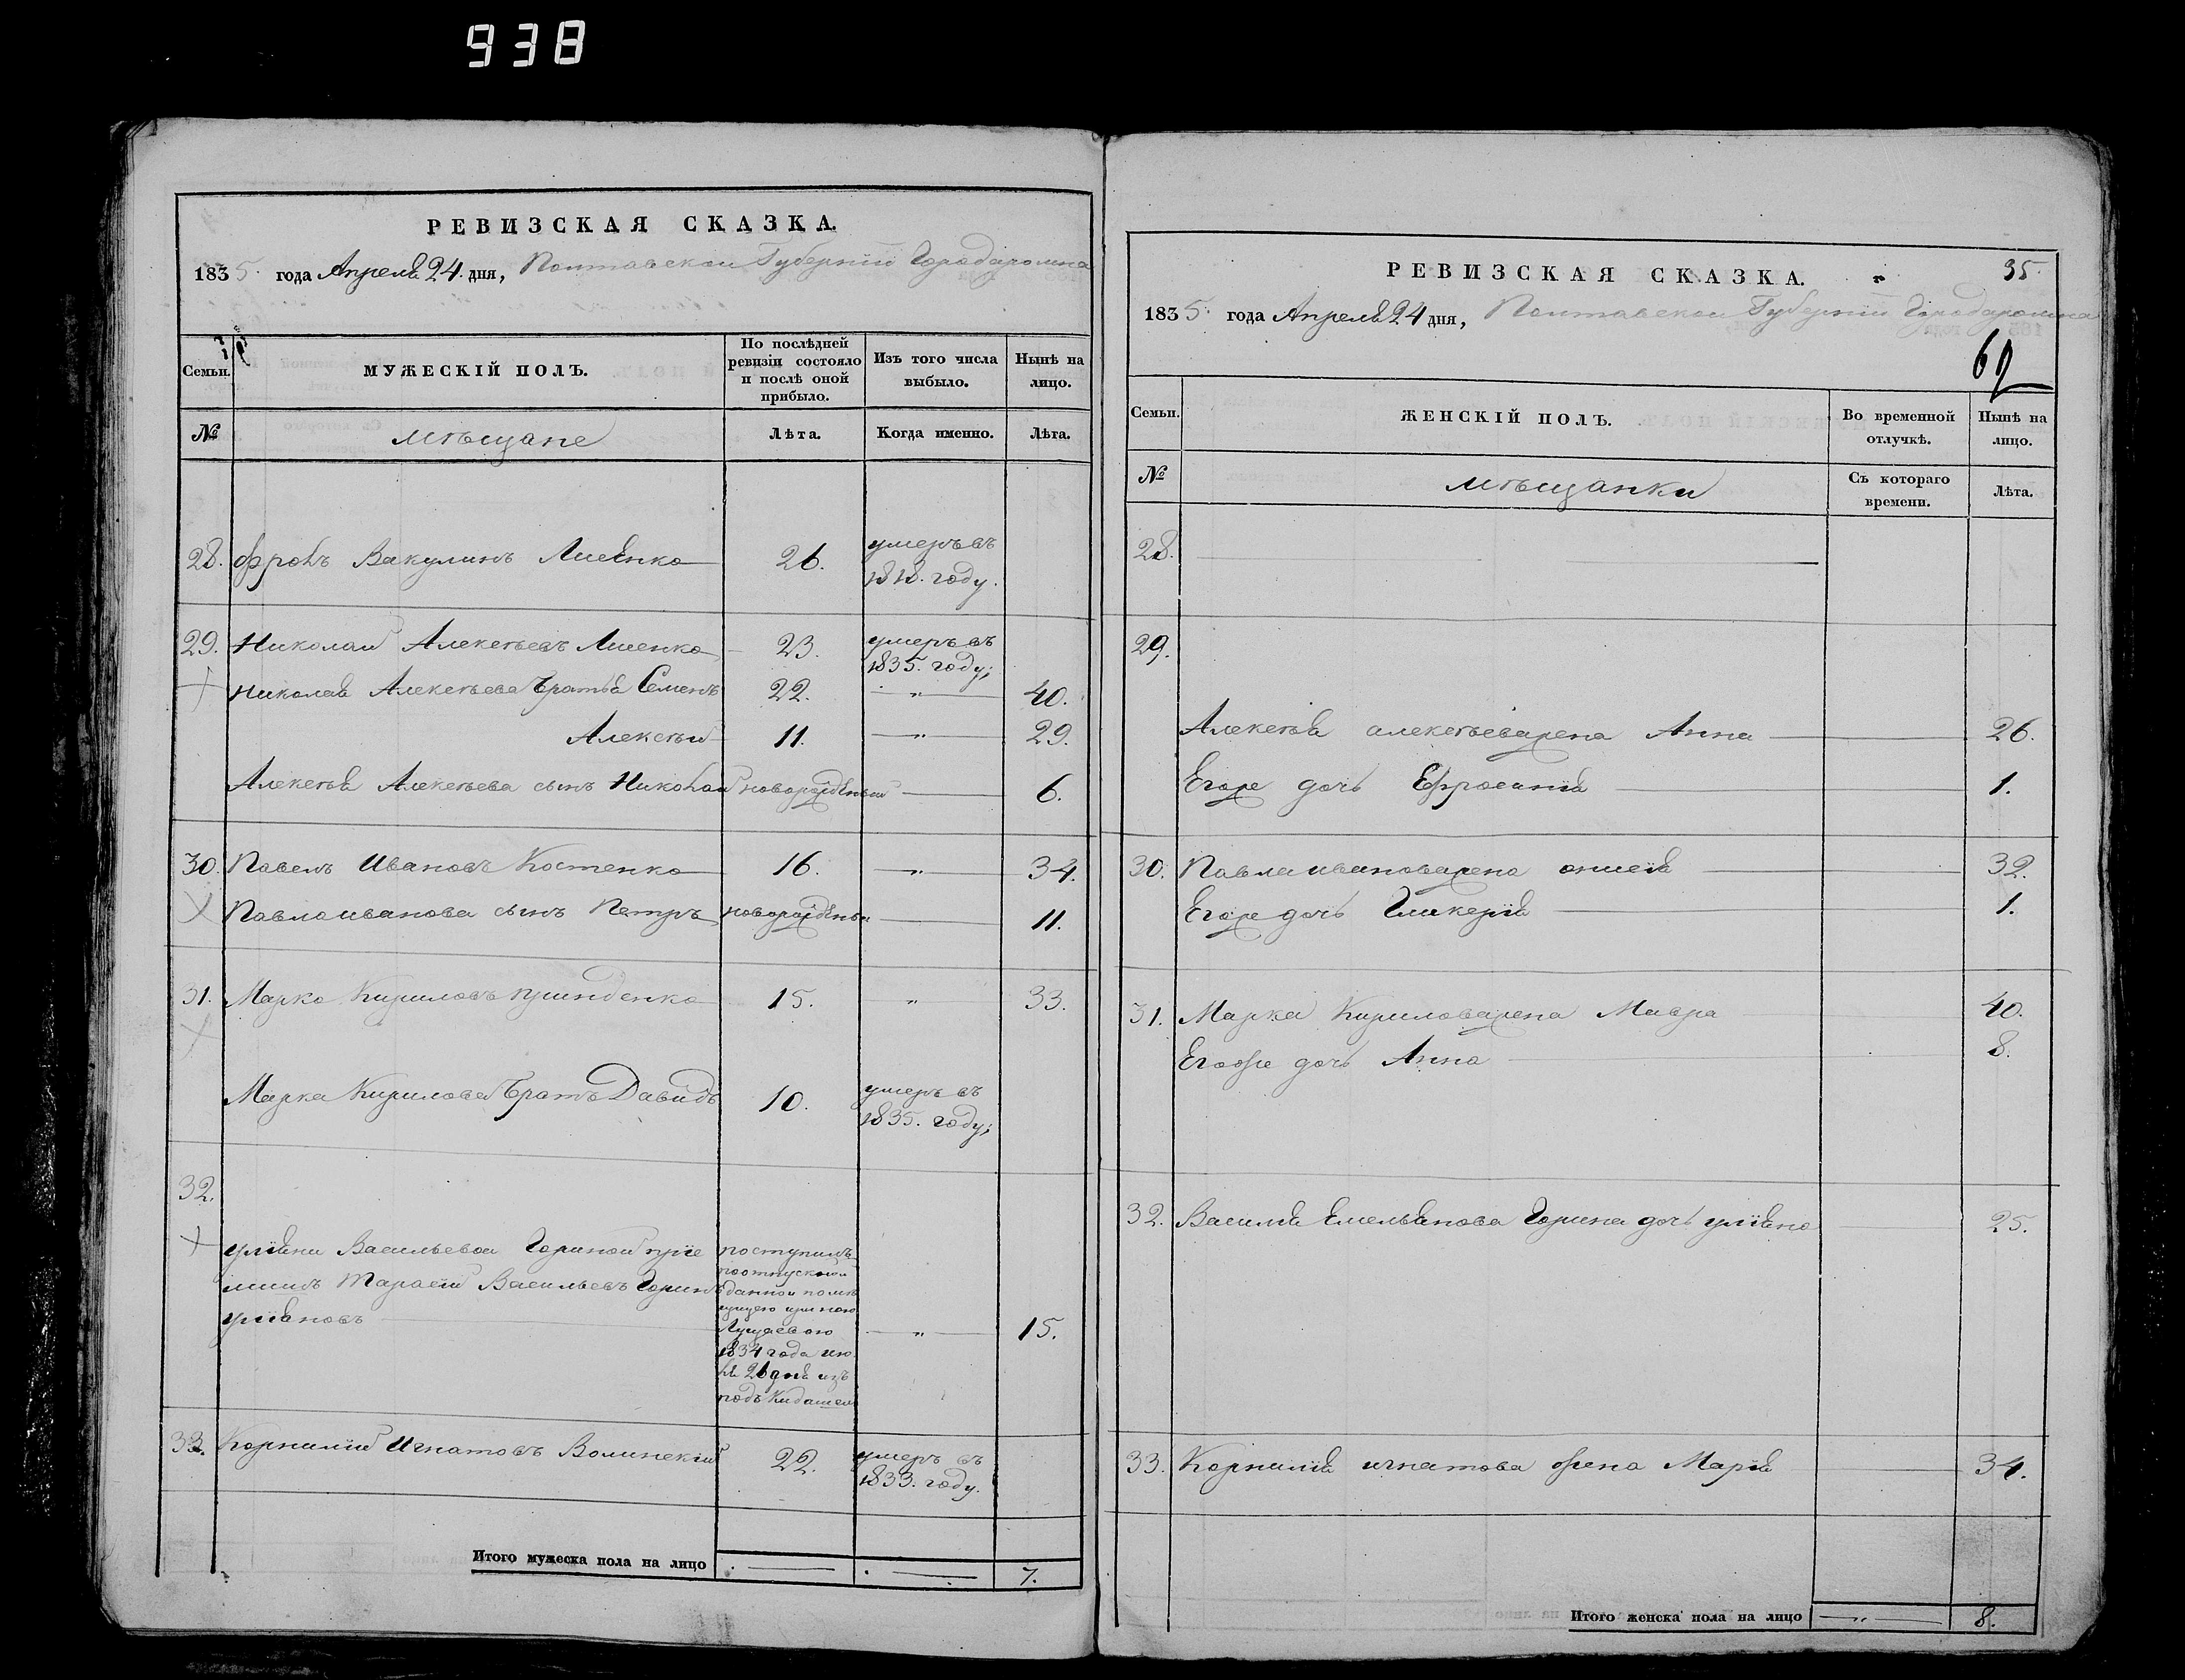 938
РЕВИЗСКАЯ СКАЗКА.
1835. года Апреля 24. дня, Полтавской Губернии Города Ромна
Семьи.
МУЖЕСКІЙ ПОЛЪ.
По послѣдней ревизіи состояло и послѣ оной прибыло.
Изъ того числа выбыло.
Нынѣ на лицо.
№
мѣщане
Лѣта.
Когда именно.
Лѣта.
28. Фролъ Вакулинъ 26. умеръ въ
1818. году.
29. Николай Алексѣевъ 23. умеръ въ
1835. году;
Николая Алексѣева братья Семенъ 22. „ 40.
Алексѣй 11. „ 29.
Алексѣя Алексѣева сынъ Николай новорожденый 6.
30. Павелъ Ивановъ Костенко 16. „ 34.
Павла иванова сынъ Петръ новорожденый 11.
31. Марко Кириловъ 15. „ 33.
Марка Кирилова братъ Давидъ 10. умеръ въ
1835. году;
32.
улияни Васильевой Гориной прие
мишъ Тарасий Васильевъ Горинъ
улияновъ „ 15.
поступилъ
по отпускной
данной помѣ
щицею
1834 года ию
ля 26 дня изъ
подъ
33. Корнилий Игнатовъ Волинский 22. умеръ въ
1833. году.
Итого мужеска пола на лицо 7.
РЕВИЗСКАЯ СКАЗКА. 35.
1835. года Апреля 24 дня, Полтавской Губернии Города Ромна
Семьи.
ЖЕНСКІЙ ПОЛЪ.
Во временной отлучкѣ.
Нынѣ на лицо.
№
мѣщанки
Съ котораго времени.
Лѣта.
28.
29.
Алексѣя алексѣева жена Анна 26.
Егоже дочь Ефросиния 1.
30. Павла иванова жена 32.
Егоже дочь Гликерия 1.
31. Марка Кирилова жена Мавра 40.
Егоже дочь Анна 8.
32. Василия Емельянова Горина дочь улияна 25.
33. Корнилия игнатова жена Мария 34.
Итого женска пола на лицо „ 8.